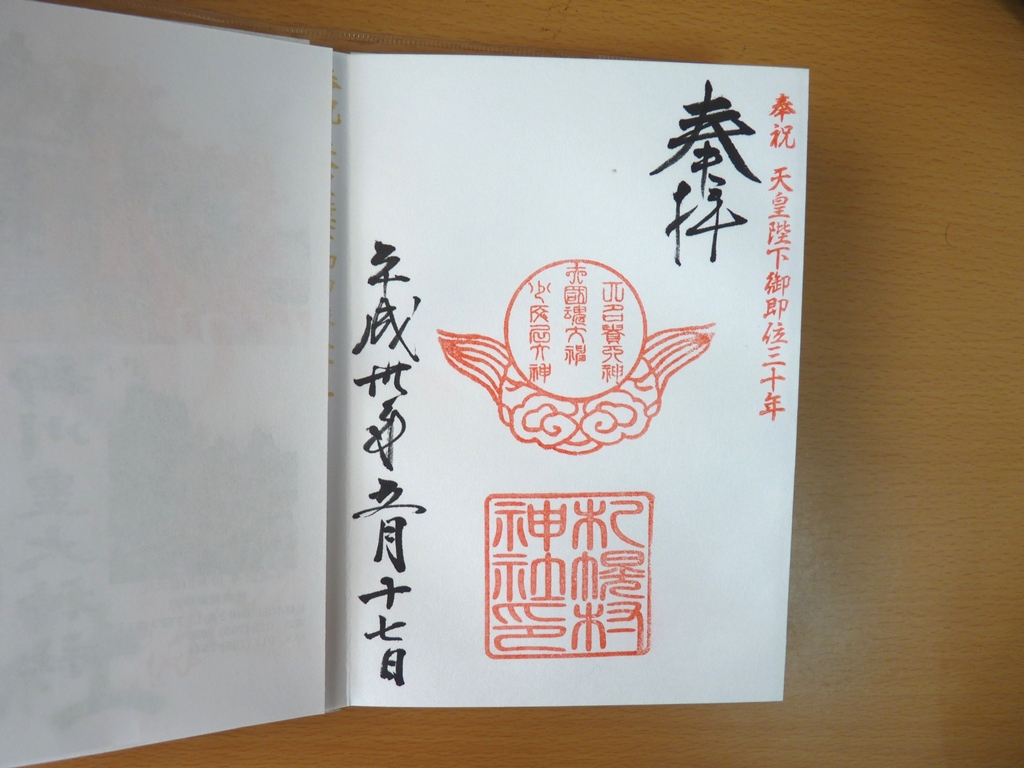 奉祝 天皇陛下御即位三十年
奉拝
大己貴大神
大國魂大神
少彦名大神
札幌村
神社印
平成卅年五月十七日